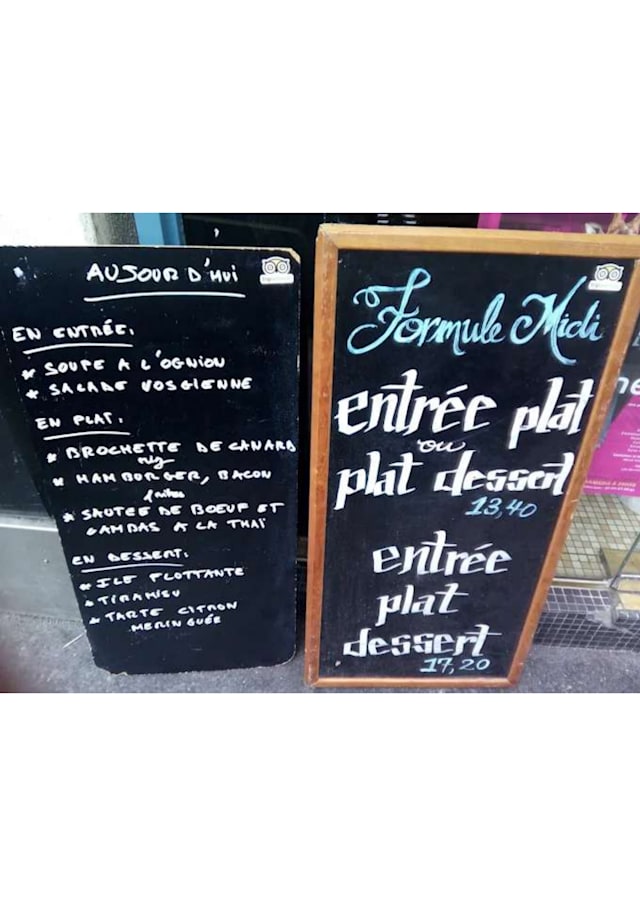 AUJOUR D'HUI
EN ENTRÉE:
* SOUPE A L'OGNION
* SALADE VOSGIENNE
EN PLAT:
* BROCHETTE DE CANARD
riz
* HAMBURGER, BACON
frites
* SAUTEE DE BOEUF ET
GAMBAS A LA THAÏ
EN DESSERT:
* ILE FLOTTANTE
* TIRAMISU
* TARTE CITRON
MERINGUÉE
Formule Midi
entrée plat
ou
plat dessert
13,40
entrée
plat
dessert
17,20